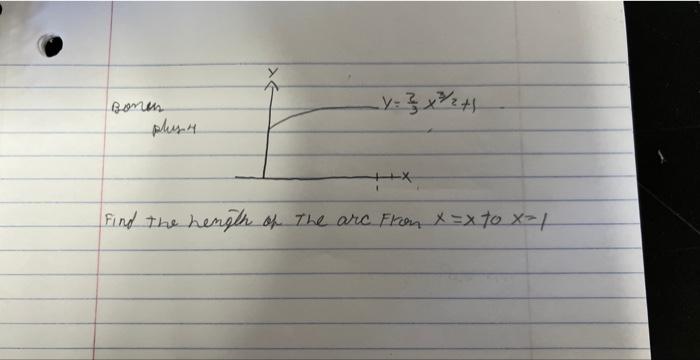 Y
Bonen
plus 4
y = 2/3 x^3/2 + 1
X
1
Find the length of the arc From x = x to x = 1